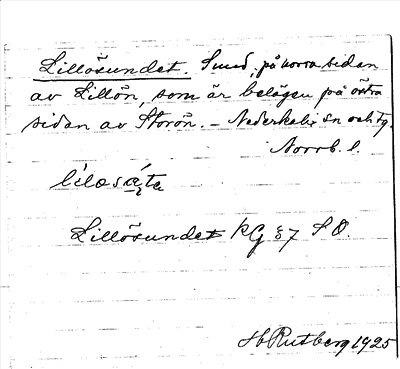 Lillösundet. Sund, på norra sidan
av Lillön, som är belägen på östra
sidan av Storön. — Nederkalix sn och tg.
Norrb. l.
Lillösundet KG 37 S O.
Hj Rutberg 1925